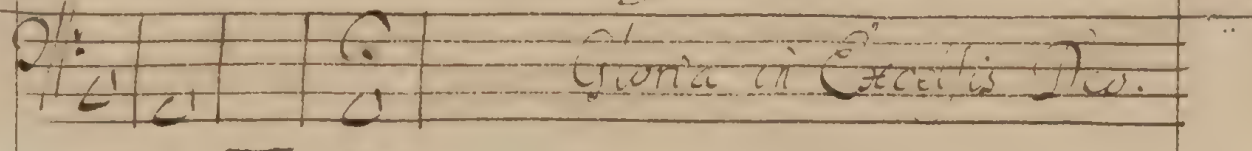 Gloria in Excelsis Deo.